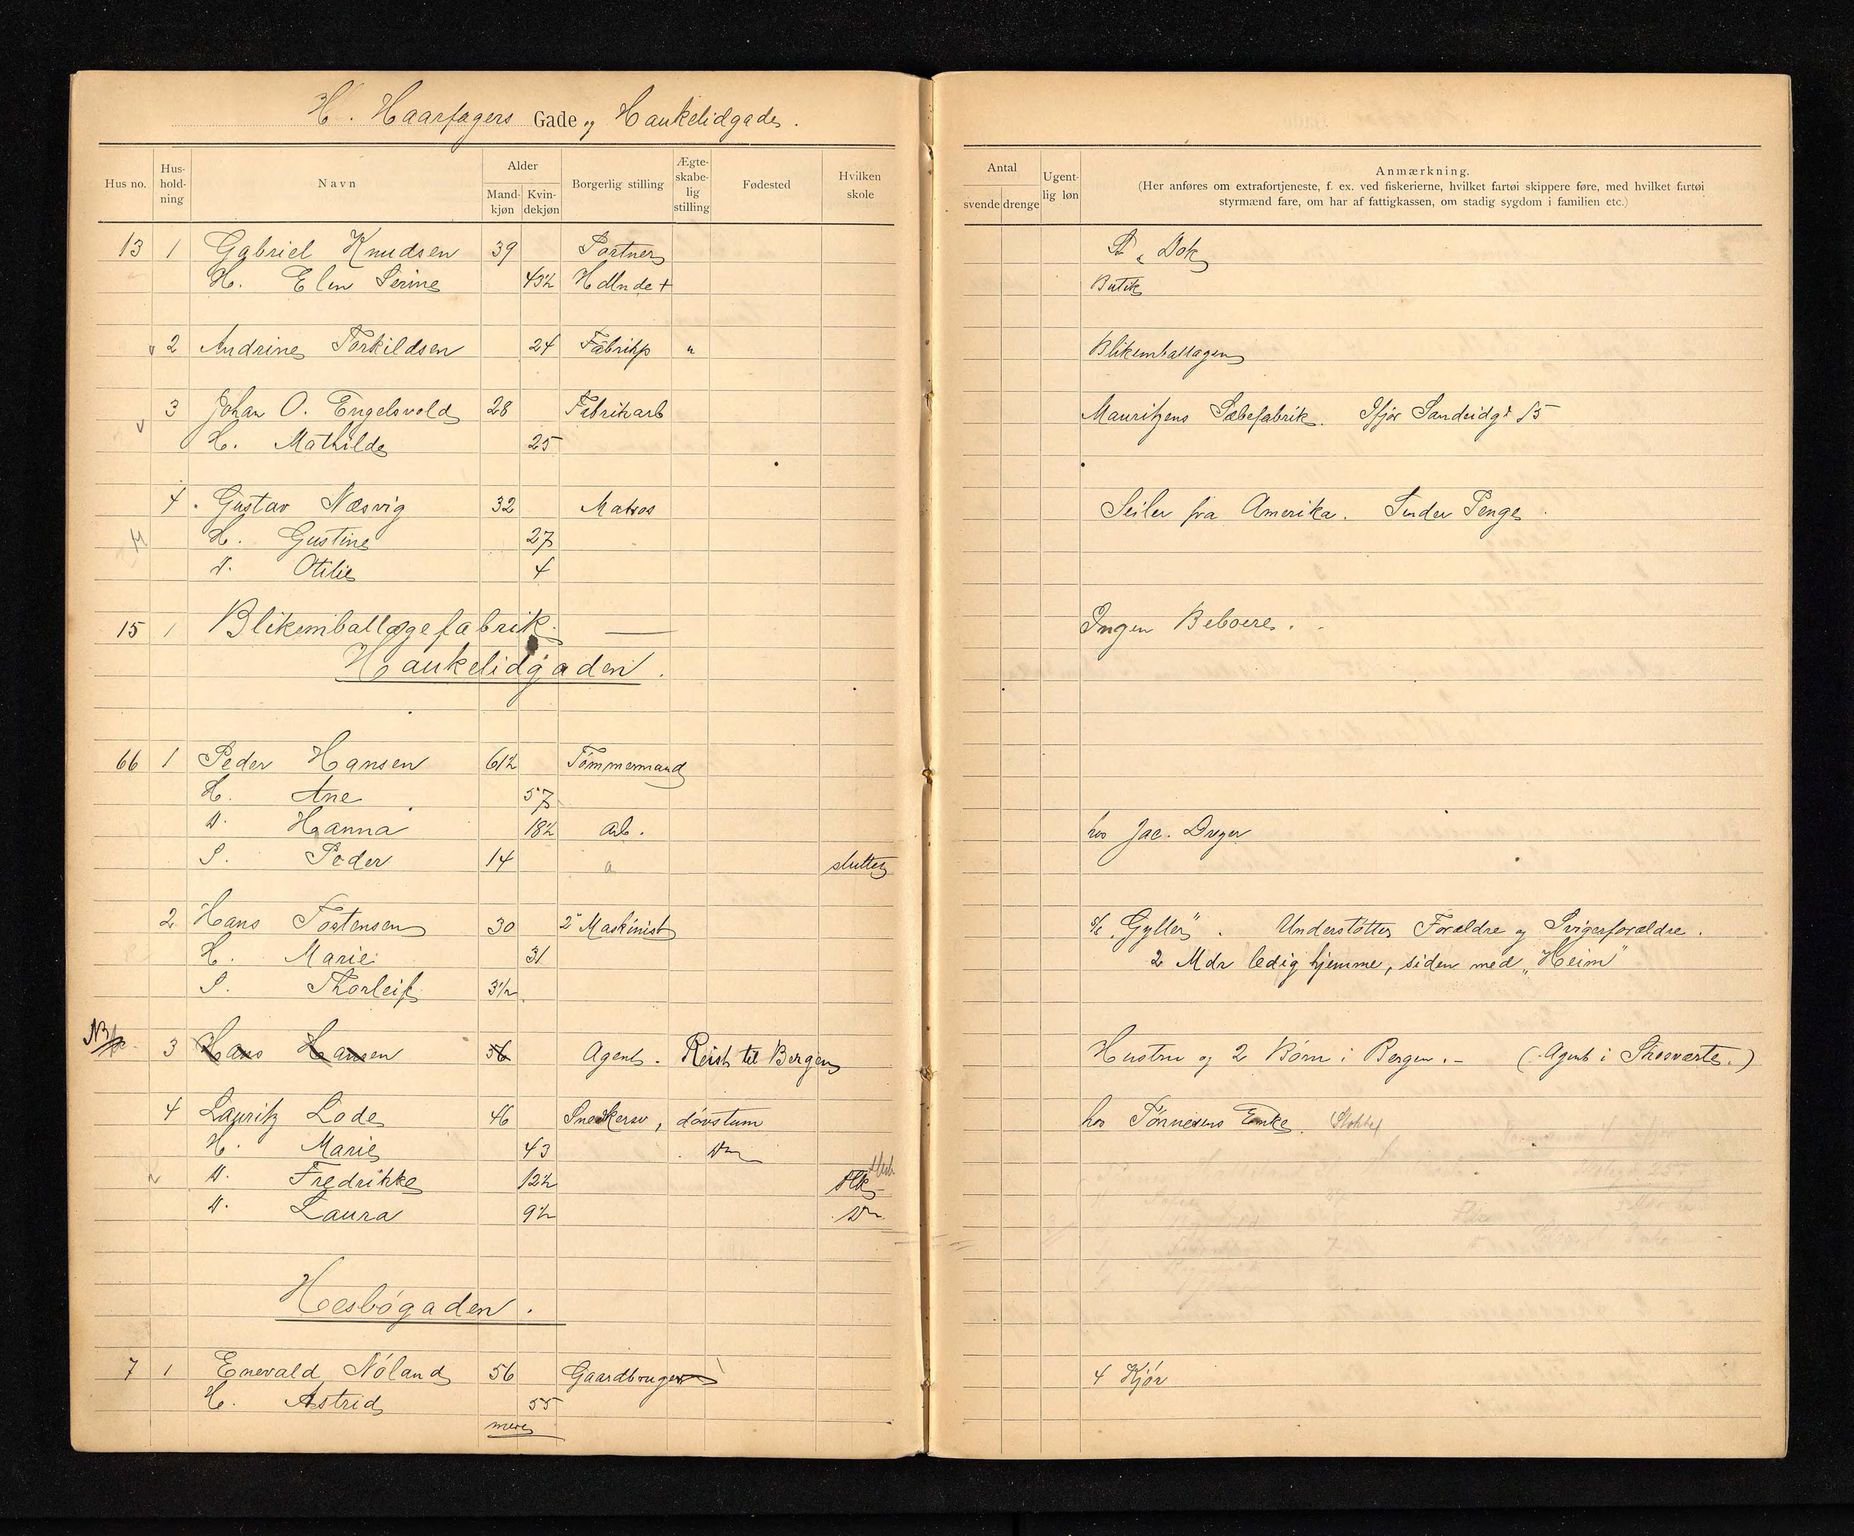 H. Haarfagers Gade og Haukelidgade.
Hus no. Hus-hold-ning Navn Alder Mand-kjøn Kvin-dekjøn Borgerlig stilling Ægte-skabe-lig stilling Fødested Hvilken skole
Antal svende drenge Ugent-lig løn Anmærkning.
(Her anføres om extrafortjeneste, f. ex. ved fiskerierne, hvilket fartøi skippere føre, med hvilket fartøi
styrmænd fare, om har af fattigkassen, om stadig sygdom i familien etc.)
13 1 Gabriel Knudsen 39 Portner St. Dok
H. Elen Serine 43½ Hdlnde + Butik
2 Andrine Torkildsen 24 Fabrikp " Blikemballagen
3 Johan O. Engelsvold 28 Fabrikarb Mauritzens Sæbefabrik. Ifjor Sandvidgt 15
H. Mathilde 25
4 Gustav Næsvig 32 Matros Seiler fra Amerika. Sender Penge.
H. Gustine 27
D. Otilie 4
15 1 Blikemballagefabrik. — Ingen Beboere.
Haukelidgaden.
66 1 Peder Hansen 61½ Tømmermand
H. Ane 57
D. Hanna 18½ Arb. hos Jac. Dreyer
S. Peder 14 sluttet
2 Hans Tostensen 30 2° Maskinist S/S "Gyller". Understøtter Forældre og Svigerforældre.
H. Marie 31 2 Mdr ledig hjemme, siden med "Heim"
S. Thorleif 3½
NB 3 Hans Hansen 56 Agent. Reist til Bergen Hustru og 2 Børn i Bergen. - (Agent i Skosværte.)
4 Lauritz Lode 46 Snedkersv, døvstum hos Tønnesens Enke. Stokkel
H. Marie 43 Do
D. Fredrikke 12½ Flk
D. Laura 9½ Do
Hesbøgaden.
7 1 Enevald Nøland 56 Gaardbruger 4 Kjør
H. Astrid 55
mere